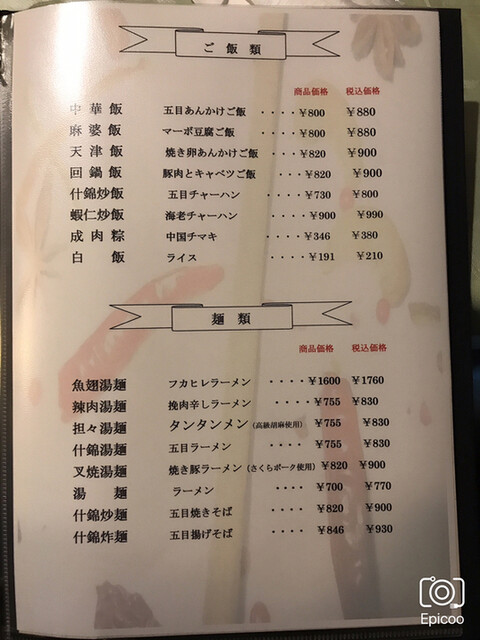 ご飯類
商品価格 税込価格
中華飯 五目あんかけご飯 ････¥800 ¥880
麻婆飯 マーボ豆腐ご飯 ････¥800 ¥880
天津飯 焼き卵あんかけご飯 ････¥820 ¥900
回鍋飯 豚肉とキャベツご飯 ････¥820 ¥900
什錦炒飯 五目チャーハン ････¥730 ¥800
蝦仁炒飯 海老チャーハン ････¥900 ¥990
成肉粽 中国チマキ ････¥346 ¥380
白飯 ライス ････¥191 ¥210
麺類
商品価格 税込価格
魚翅湯麺 フカヒレラーメン ････¥1600 ¥1760
辣肉湯麺 挽肉辛しラーメン ････¥755 ¥830
担々湯麺 タンタンメン（高級胡麻使用） ¥755 ¥830
什錦湯麺 五目ラーメン ････¥755 ¥830
叉焼湯麺 焼き豚ラーメン（さくらポーク使用） ¥820 ¥900
湯麺 ラーメン ････¥700 ¥770
什錦炒麺 五目焼きそば ････¥820 ¥900
什錦炸麺 五目揚げそば ････¥846 ¥930
Epicoo